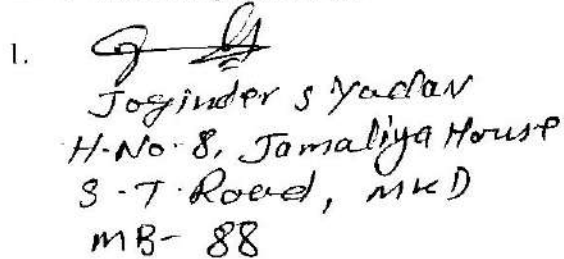 1.
Joginder S Yadav
H.No. 8, Jamaliya House
S.T. Road, MKD
MB- 88